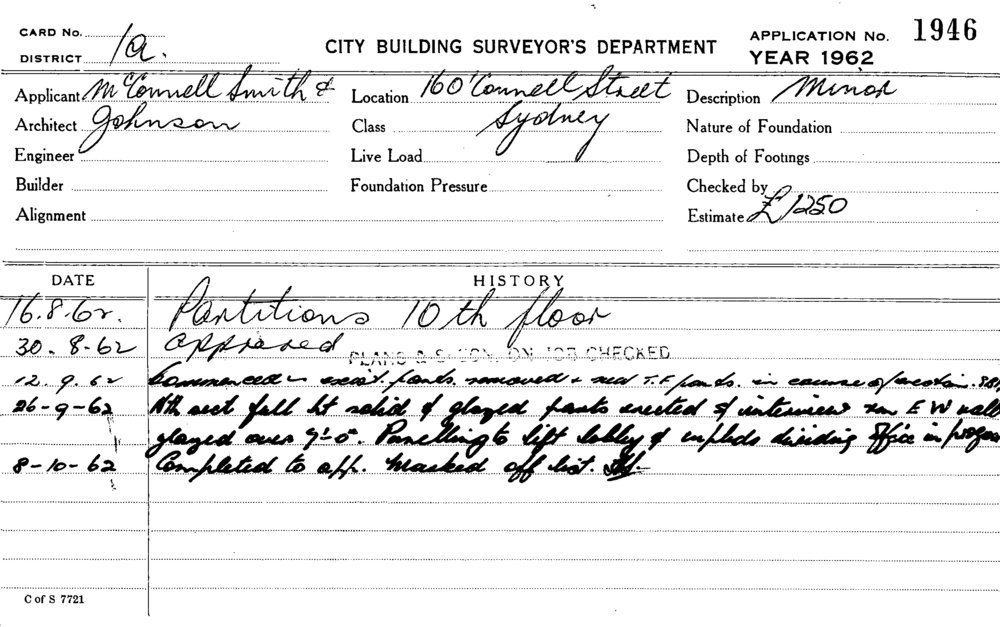 CARD No.
DISTRICT 1a.
CITY BUILDING SURVEYOR'S DEPARTMENT
APPLICATION No. 1946
YEAR 1962
Applicant McConnell Smith &
Architect Johnson
Engineer
Builder
Alignment
Location 16 O'Connell Street
Class Sydney
Live Load
Foundation Pressure
Description Minor
Nature of Foundation
Depth of Footings
Checked by
Estimate £1250
DATE HISTORY
16.8.62. Partitions 10th floor
30.8-62 approved PLANS & ON JOB CHECKED
12.9.62 Commenced exist. removed + new T.F. in course of erection.
26-9-62 Nth sect full ht solid & glazed erected of interview rm E W walls
glazed over 7'-0". Panelling to lift lobby & dividing office in
8-10-62 Completed to app. Marked off list.
C of S 7721